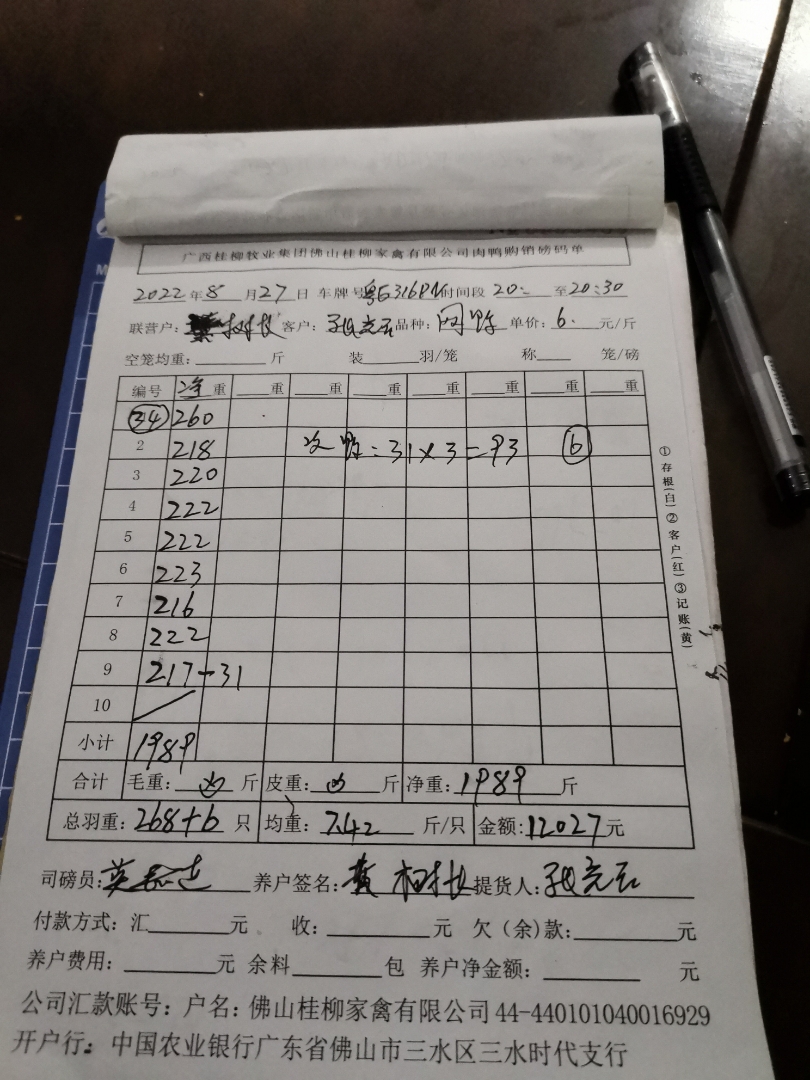 广西桂柳牧业集团佛山桂柳家禽有限公司肉鸭购销磅码单
2022年8月27日 车牌号 时间段 20: 至20:30
联营户: 树 客户: 品种: 单价:6. 元/斤
空笼均重: 斤 装 羽/笼 称 笼/磅
编号 净重 重 重 重 重 重 重 重
34 260
2 218 次 :31×3=93 6
3 220
4 222
5 222
6 223
7 216
8 222
9 217-31
10
小计 1989
合计 毛重: 斤 皮重: 斤 净重:1989 斤
总羽重:268+6 只 均重:7.42 斤/只 金额:12027元
司磅员: 养户签名:黄树 提货人:
付款方式:汇 元 收: 元 欠(余)款: 元
养户费用: 元 余料 包 养户净金额: 元
公司汇款账号:户名:佛山桂柳家禽有限公司44-440101040016929
开户行:中国农业银行广东省佛山市三水区三水时代支行
①存根(白)②客户(红)③记账(黄)